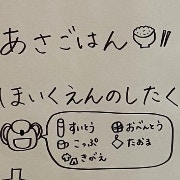 あさごはん
ほいくえんのしたく
すいとう おべんとう
こっぷ たおる
きがえ